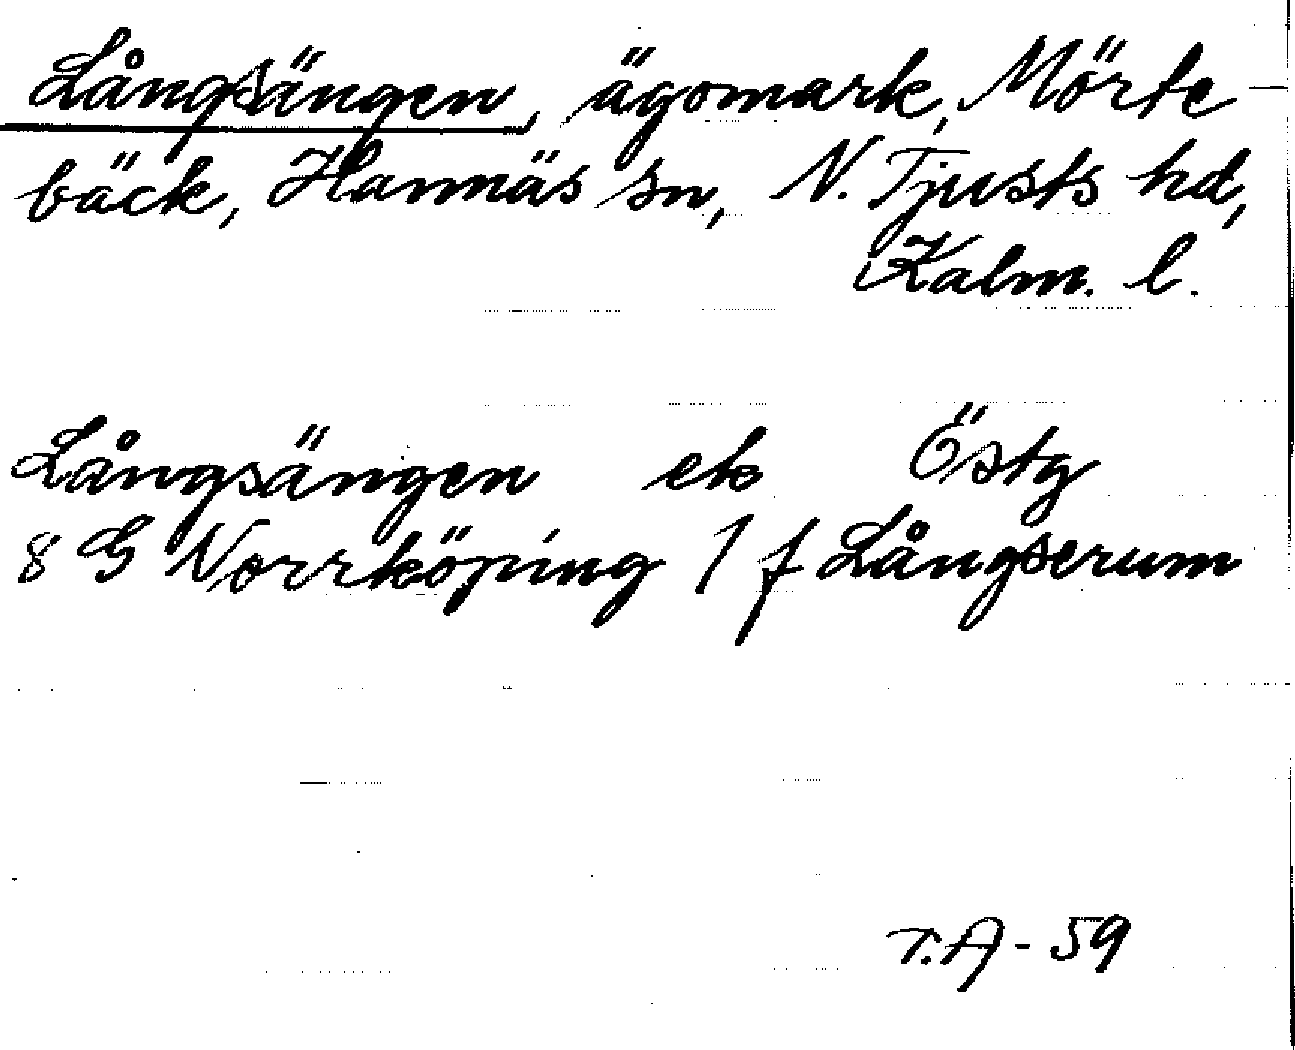 Långsängen, ägomark, Mörte-
bäck, Hannäs sn, N. Tjusts hd,
Kalm. l.
Långsängen ek Östg
8 G Norrköping 1 f Långserum
T.A - 59